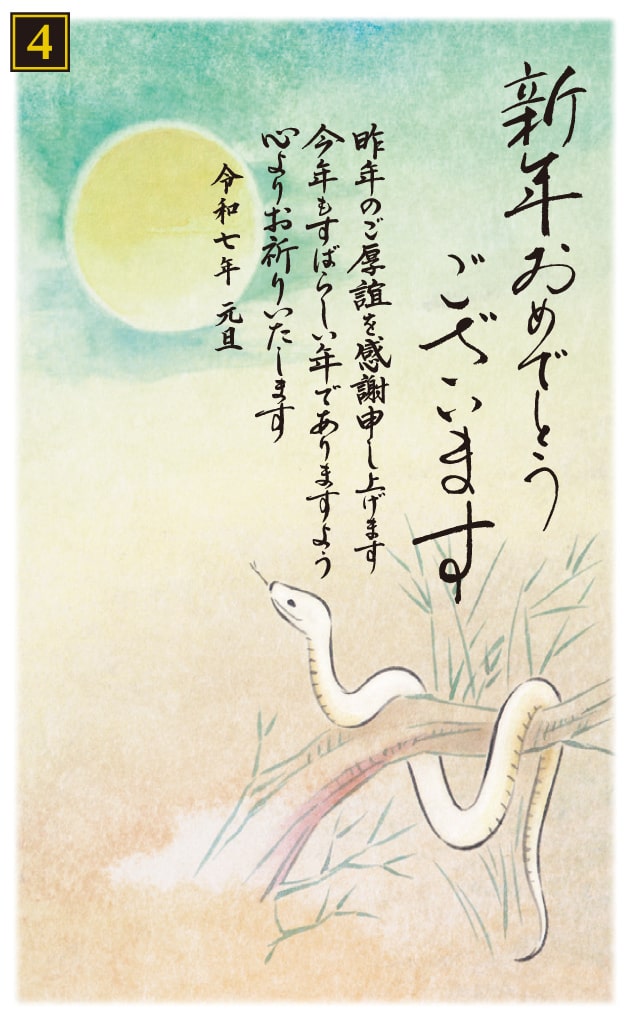 4
新年おめでとう
ございます
昨年のご厚誼を感謝申し上げます
今年もすばらしい年でありますよう
心よりお祈りいたします
令和七年 元旦